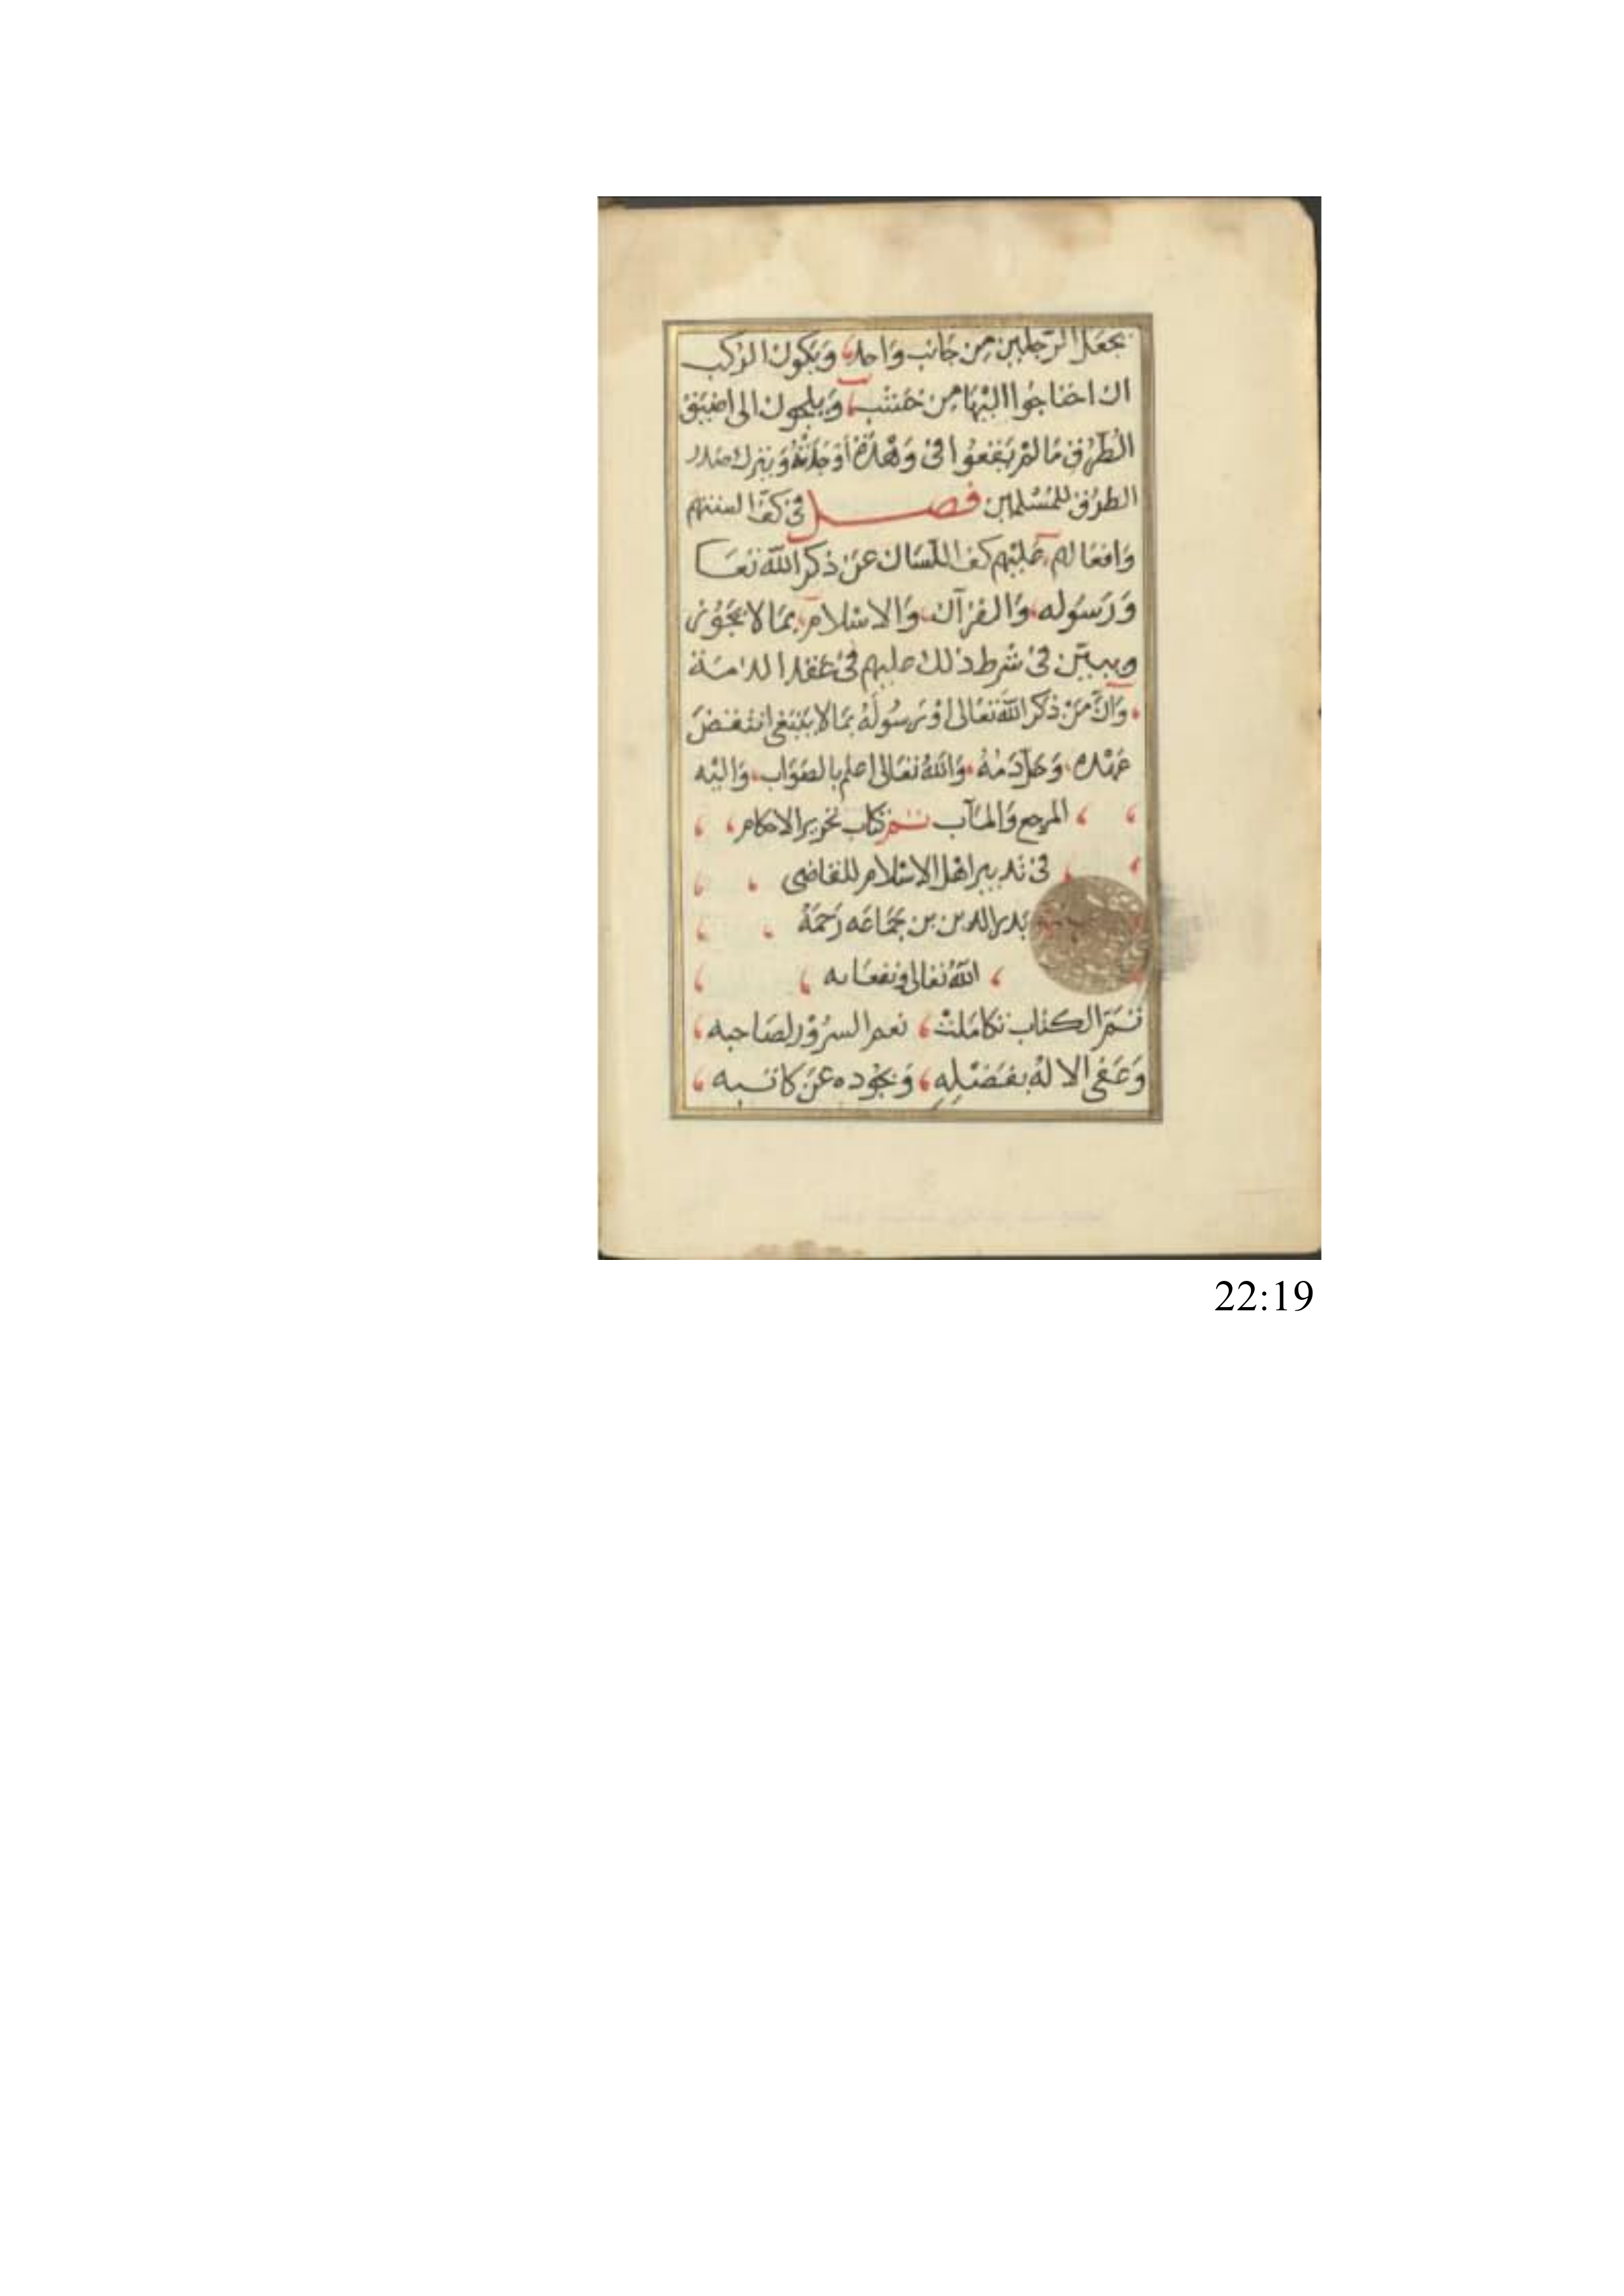 يجعل الرجلين من جانب واحد، ويكون الركب
ان احتاجوا اليها من خشب، ويلجون الى اضيق
الطرق ما لم يقعوا فى وهدة أو جلثه ويترك صدر
الطرق للمسلمين فصل فى كف السنتهم
وافعالهم عليهم كف اللسان عن ذكر الله تعا
ورسوله والقرآن والاسلام بما لا يجوز
ويبين فى شرط ذلك عليهم فى عقد الذمة
وان من ذكر الله تعالى او رسوله بما لا ينبغى انتقض
عهده وحل دمه والله تعالى اعلم بالصواب واليه
المرجع والمآب تم كتاب تحرير الاحكام
فى تدبير اهل الاسلام للقاضى
بدر الدين بن جماعه رحمه
الله تعالى ونفعنا به
تم الكتاب تكاملت، نعم السرور لصاحبه
وعفى الاله بفضله، وبجوده عن كاتبه
22:19